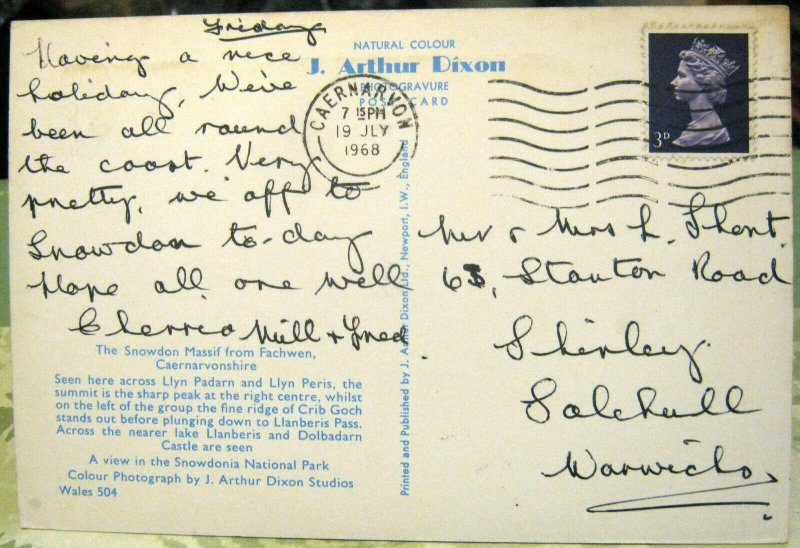 Friday
Having a nice
holiday, We've
been all round
the coast. Very
pretty, we off to
Snowdon to-day
Hope all are well
Cheerio Mill + Fred
NATURAL COLOUR
J. Arthur Dixon
PHOTOGRAVURE
POST CARD
CAERNARVON
7 15PM
19 JLY
1968
3D
Mr + Mrs L. Shont
63, Stanton Road
Shirley
Solihull
Warwicks
The Snowdon Massif from Fachwen,
Caernarvonshire
Seen here across Llyn Padarn and Llyn Peris, the
summit is the sharp peak at the right centre, whilst
on the left of the group the fine ridge of Crib Goch
stands out before plunging down to Llanberis Pass.
Across the nearer lake Llanberis and Dolbadarn
Castle are seen
A view in the Snowdonia National Park
Colour Photograph by J. Arthur Dixon Studios
Wales 504
Printed and Published by J. Arthur Dixon Ltd., Newport, I.W., England